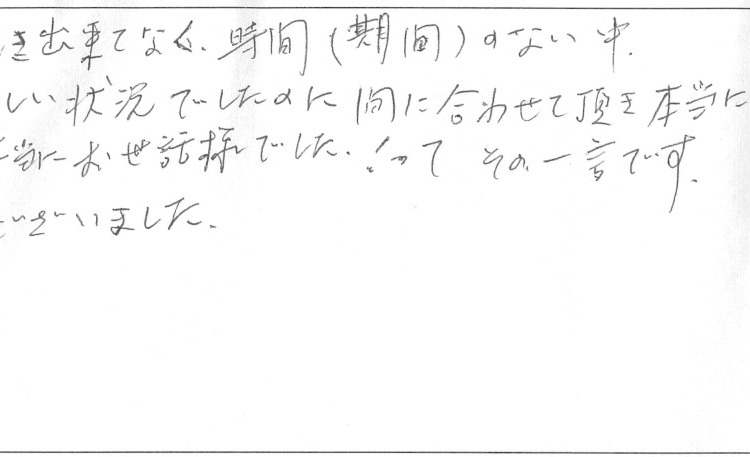 き出来てなく、時間(期間)のない中、
しい状況でしたのに間に合わせて頂き本当に
当にお世話様でした。!って その一言です。
ございました。